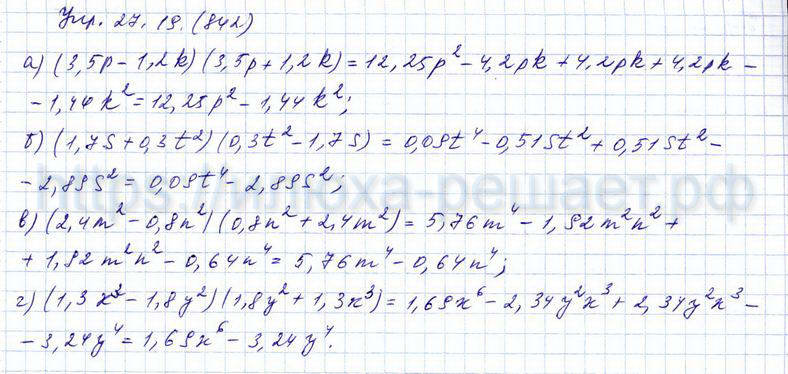 Упр. 27.19. (842)
а) (3,5p - 1,2k) (3,5p + 1,2k) = 12,25p² - 4,2pk + 4,2pk + 4,2pk -
- 1,44k² = 12,25p² - 1,44k²;
б) (1,7s + 0,3t²) (0,3t² - 1,7s) = 0,09t⁴ - 0,51st² + 0,51st² -
- 2,89s² = 0,09t⁴ - 2,89s²;
https://илюха-решает.рф
в) (2,4m² - 0,8n²) (0,8n² + 2,4m²) = 5,76m⁴ - 1,92m²n² +
+ 1,92m²n² - 0,64n⁴ = 5,76m⁴ - 0,64n⁴;
г) (1,3x³ - 1,8y²) (1,8y² + 1,3x³) = 1,69x⁶ - 2,34y²x³ + 2,34y²x³ -
- 3,24y⁴ = 1,69x⁶ - 3,24y⁴.